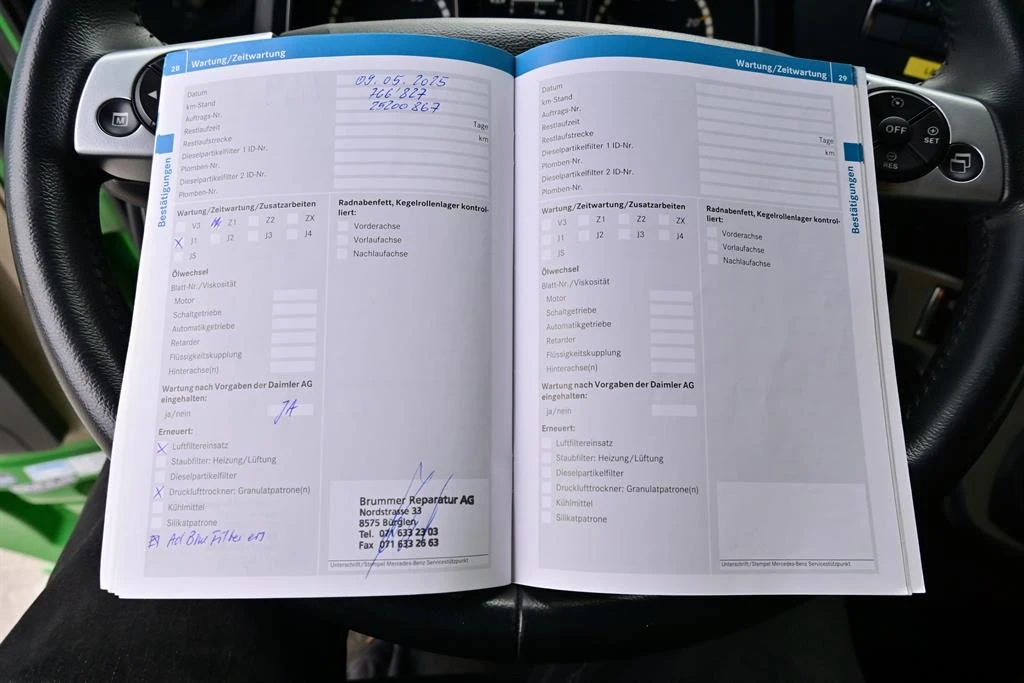 28 Wartung/Zeitwartung
Datum 09.05.2025
km-Stand 766'827
Auftrags-Nr. 25200867
Restlaufzeit Tage
Restlaufstrecke km
Dieselpartikelfilter 1 ID-Nr.
Plomben-Nr.
Dieselpartikelfilter 2 ID-Nr.
Plomben-Nr.
Bestätigungen
Wartung/Zeitwartung/Zusatzarbeiten
V3 Z1 Z2 ZX
X J1 J2 J3 J4
JS
Radnabenfett, Kegelrollenlager kontrol-
liert:
Vorderachse
Vorlaufachse
Nachlaufachse
Ölwechsel
Blatt-Nr./Viskosität
Motor
Schaltgetriebe
Automatikgetriebe
Retarder
Flüssigkeitskupplung
Hinterachse(n)
Wartung nach Vorgaben der Daimler AG
eingehalten:
ja/nein JA
Erneuert:
X Luftfiltereinsatz
Staubfilter: Heizung/Lüftung
Dieselpartikelfilter
X Drucklufttrockner: Granulatpatrone(n)
Kühlmittel
Silikatpatrone
AdBlue Filter ers
Brummer Reparatur AG
Nordstrasse 33
8575 Bürglen
Tel. 071 633 23 03
Fax 071 633 26 63
Unterschrift/Stempel Mercedes-Benz Servicestützpunkt
Wartung/Zeitwartung 29
Datum
km-Stand
Auftrags-Nr.
Restlaufzeit Tage
Restlaufstrecke km
Dieselpartikelfilter 1 ID-Nr.
Plomben-Nr.
Dieselpartikelfilter 2 ID-Nr.
Plomben-Nr.
Bestätigungen
Wartung/Zeitwartung/Zusatzarbeiten
V3 Z1 Z2 ZX
J1 J2 J3 J4
JS
Radnabenfett, Kegelrollenlager kontrol-
liert:
Vorderachse
Vorlaufachse
Nachlaufachse
Ölwechsel
Blatt-Nr./Viskosität
Motor
Schaltgetriebe
Automatikgetriebe
Retarder
Flüssigkeitskupplung
Hinterachse(n)
Wartung nach Vorgaben der Daimler AG
eingehalten:
ja/nein
Erneuert:
Luftfiltereinsatz
Staubfilter: Heizung/Lüftung
Dieselpartikelfilter
Drucklufttrockner: Granulatpatrone(n)
Kühlmittel
Silikatpatrone
Unterschrift/Stempel Mercedes-Benz Servicestützpunkt
M
OFF
SET
RES